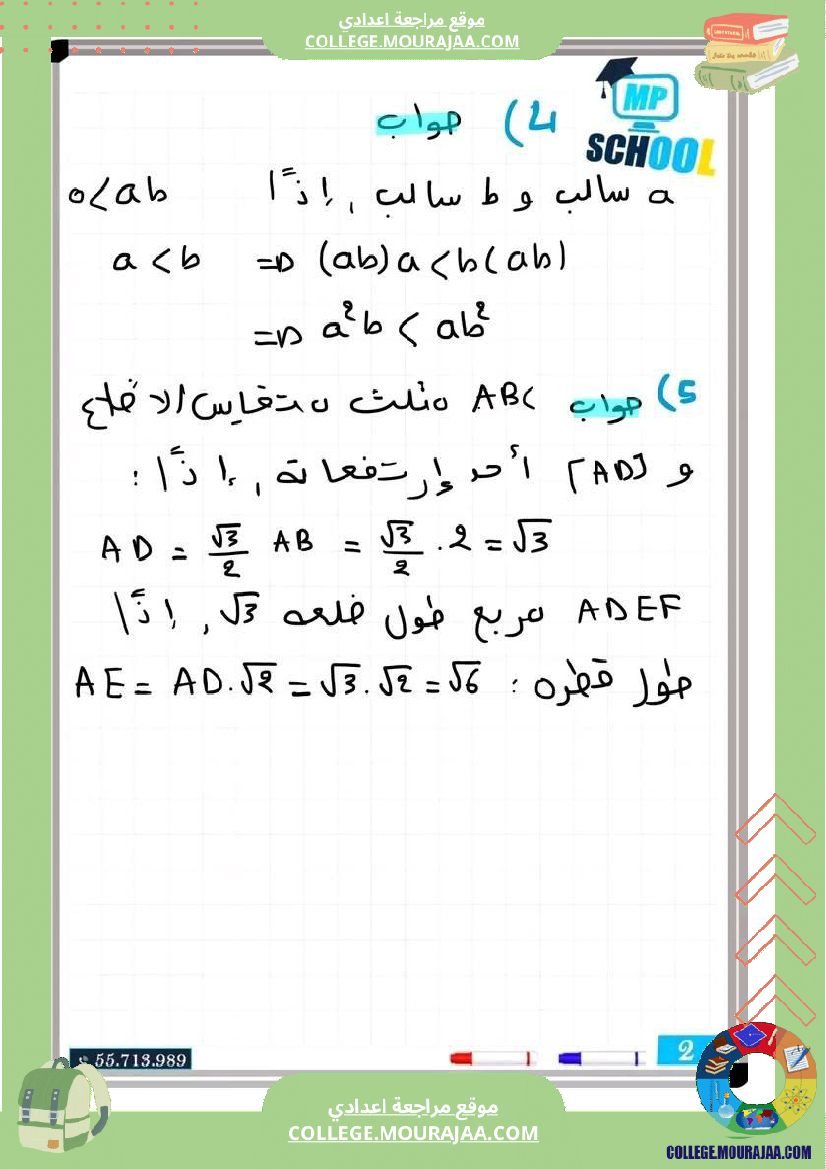 موقع مراجعة اعدادي
COLLEGE.MOURAJAA.COM
MP
SCHOOL
4) جواب
a سالب و b سالب , إذًا 0<ab
a < b => (ab)a < b(ab)
=> a²b < ab²
5) جواب ABC مثلث متقايس الاضلاع
و [AD] أحد إرتفعاته , إذًا :
AD = √3/2 AB = √3/2 . 2 = √3
ADEF مربع طول ضلعه √3 , إذًا
طول قطره : AE = AD.√2 = √3.√2 = √6
55.713.989
2
موقع مراجعة اعدادي
COLLEGE.MOURAJAA.COM
COLLEGE.MOURAJAA.COM